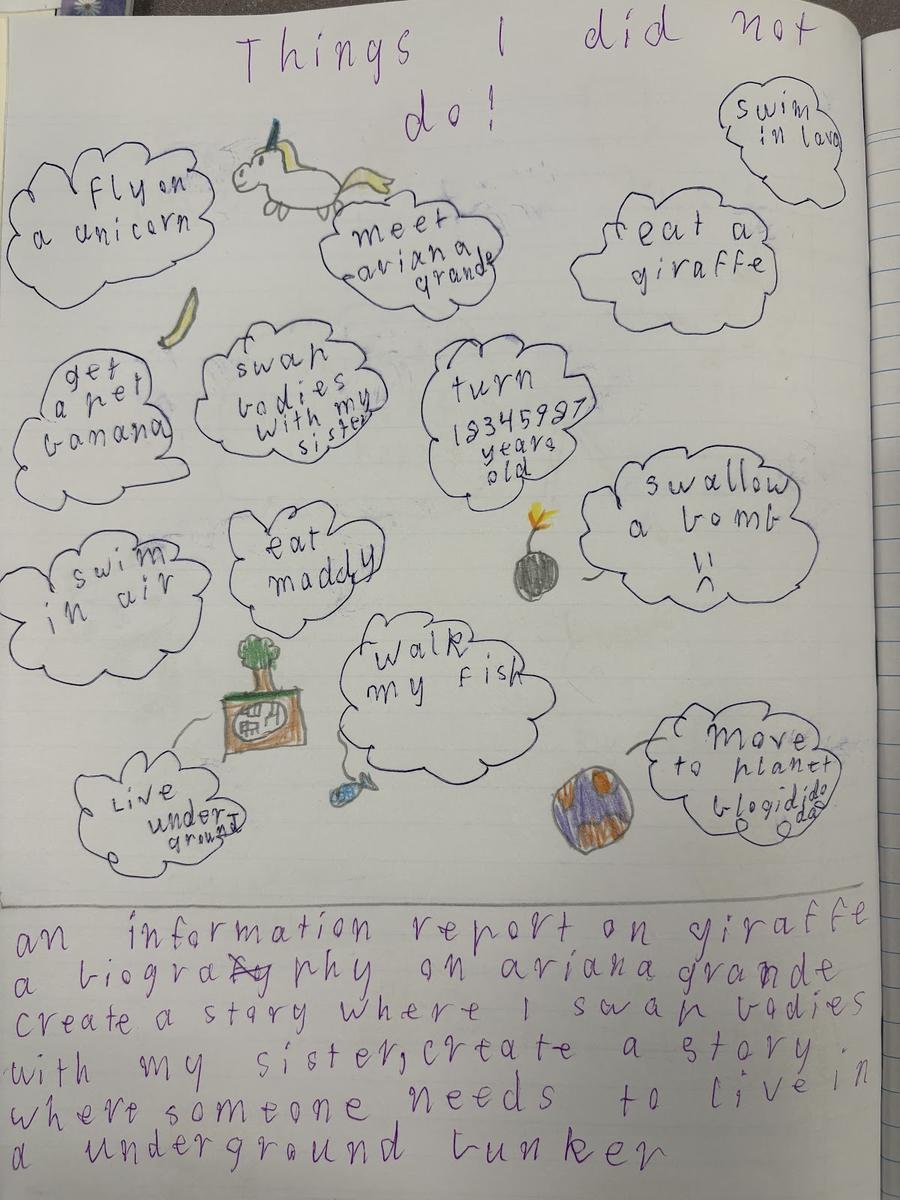 Things I did not
do!
swim
in lava
fly on
a unicorn
meet
ariana
grande
eat a
giraffe
get
a pet
banana
swap
bodies
with my
sister
turn
12345987
years
old
swallow
a bomb
swim
in air
eat
maddy
walk
my fish
Live
under
ground
move
to planet
blogidido
da
an information report on giraffe
a biography on ariana grande
create a story where I swap bodies
with my sister, create a story
where someone needs to live in
a underground bunker